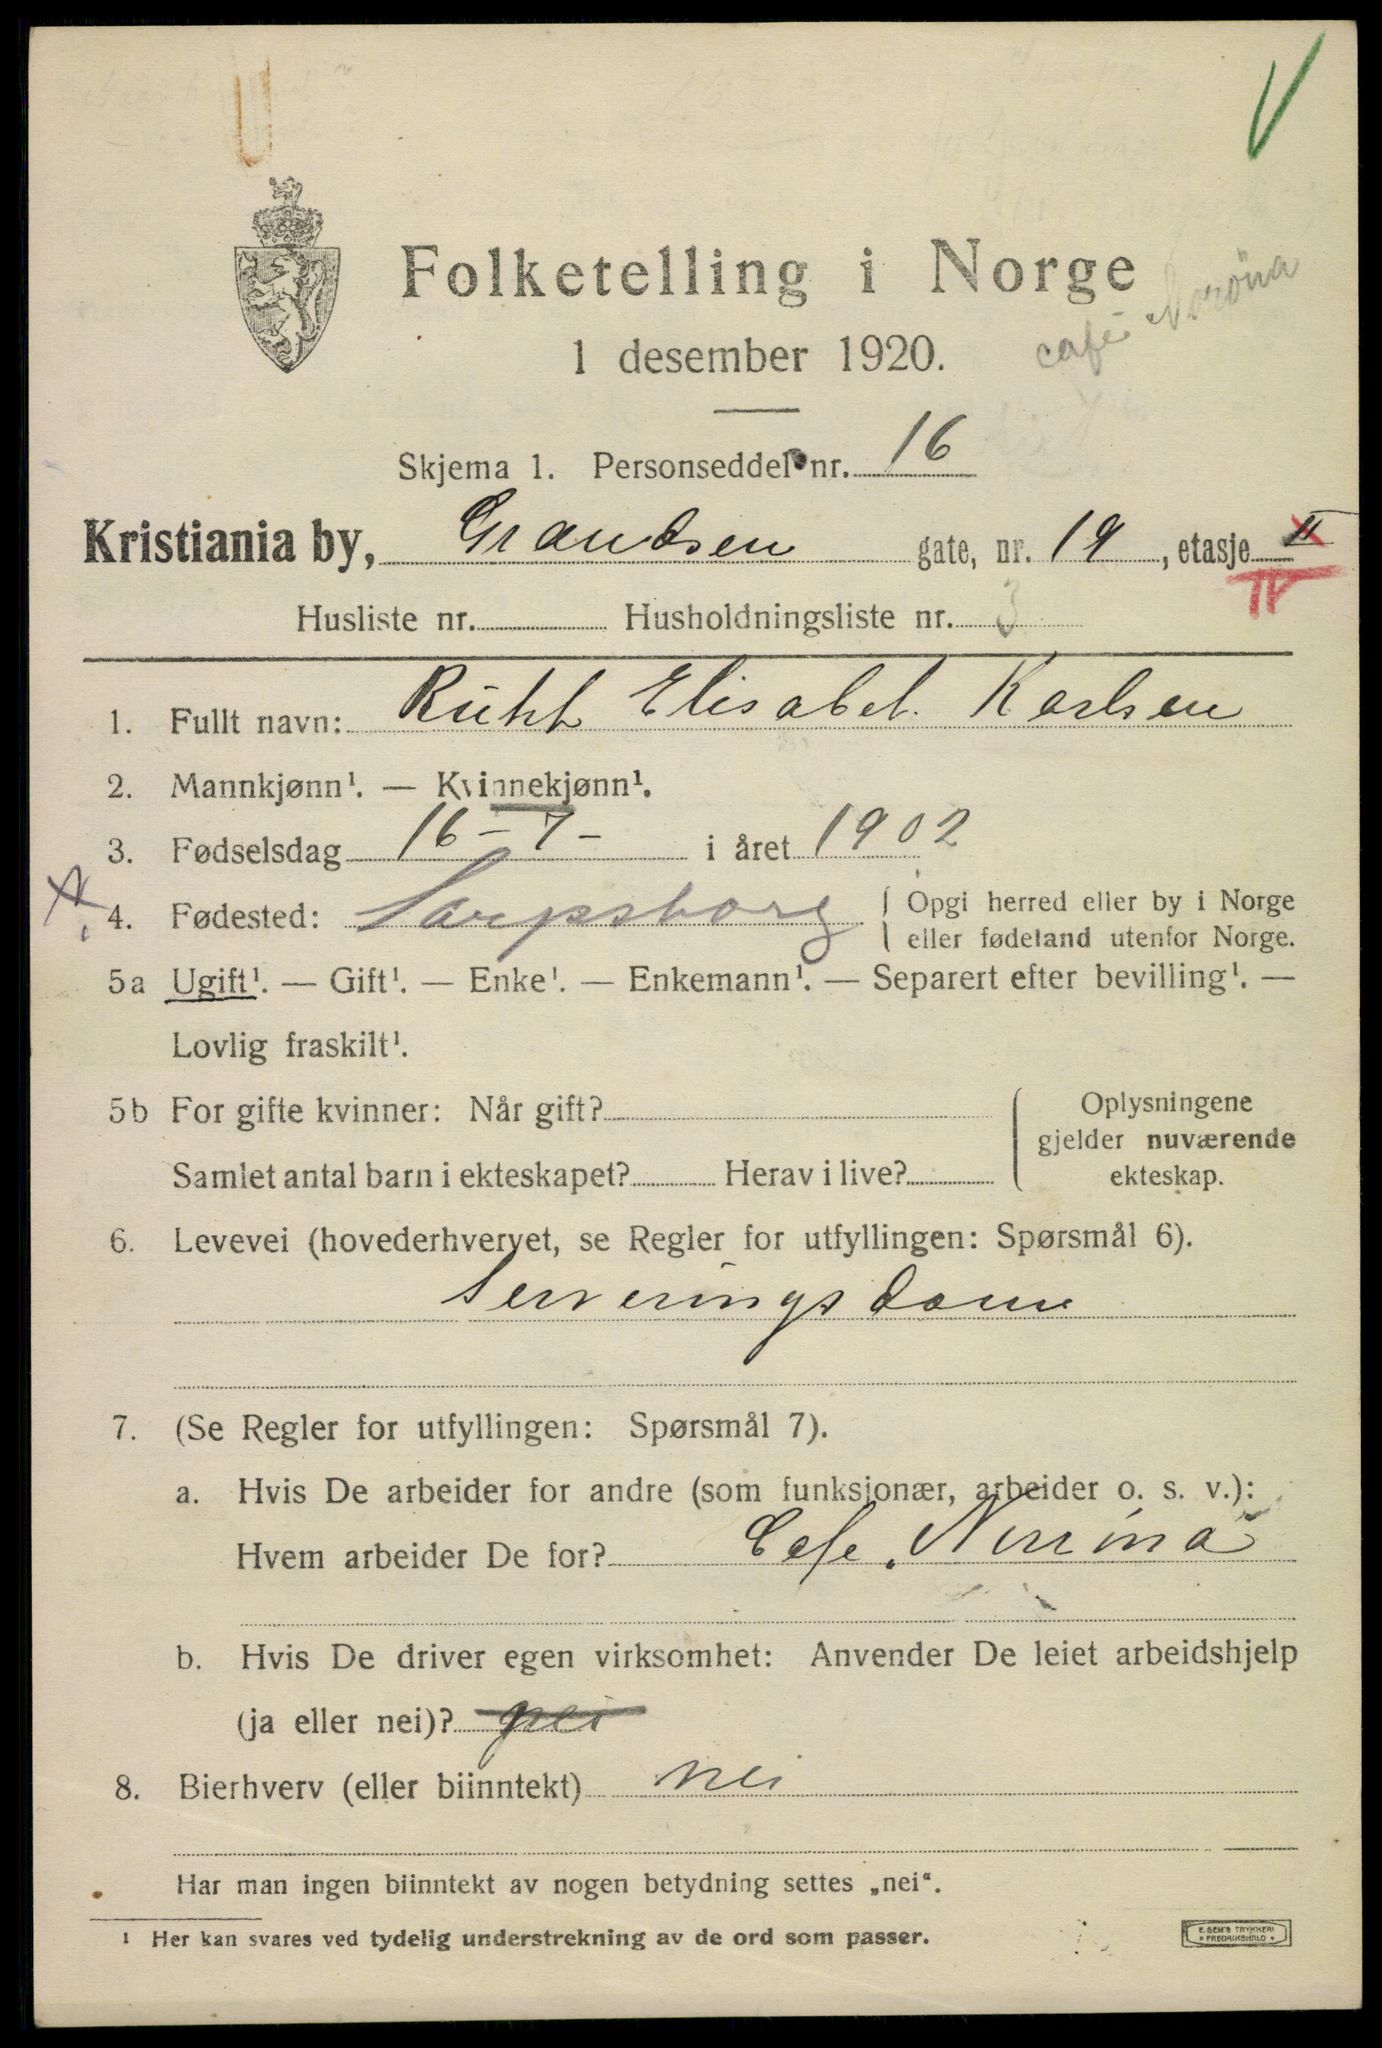 Folketelling i Norge
café Norøna
1 desember 1920.
Skjema 1. Personseddel nr. 16
Kristiania by, Grandsen gate, nr. 19, etasje II
IV
Husliste nr. Husholdningsliste nr. 3
1. Fullt navn: Ruth Elisabet Karlsen
2. Mannkjønn¹. — Kvinnekjønn¹.
3. Fødselsdag 16 - 7 - i året 1902
4. Fødested: Sarpsborg { Opgi herred eller by i Norge
eller fødeland utenfor Norge.
5a Ugift¹. — Gift¹. — Enke¹. — Enkemann¹. — Separert efter bevilling¹. —
Lovlig fraskilt¹.
5b For gifte kvinner: Når gift? Oplysningene
gjelder nuværende
Samlet antal barn i ekteskapet? Herav i live? ekteskap.
6. Levevei (hovederhvervet, se Regler for utfyllingen: Spørsmål 6).
Serveringsdame
7. (Se Regler for utfyllingen: Spørsmål 7).
a. Hvis De arbeider for andre (som funksjonær, arbeider o. s. v.):
Hvem arbeider De for? Cafe
b. Hvis De driver egen virksomhet: Anvender De leiet arbeidshjelp
(ja eller nei)? nei
8. Bierhverv (eller biinntekt) nei
Har man ingen biinntekt av nogen betydning settes „nei“.
¹ Her kan svares ved tydelig understrekning av de ord som passer.
E. SEM'S TRYKKERI
FREDRIKSHALD